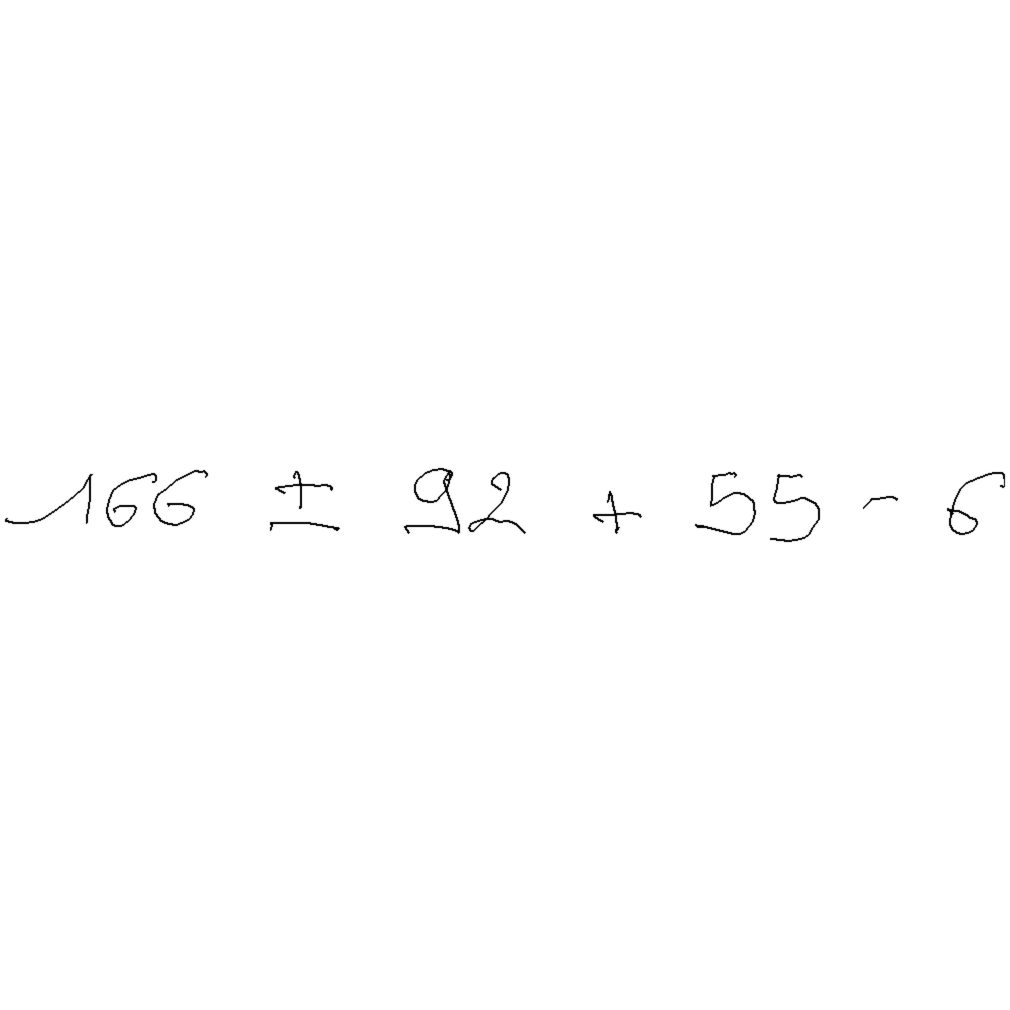 166 ± 92 + 55 - 6